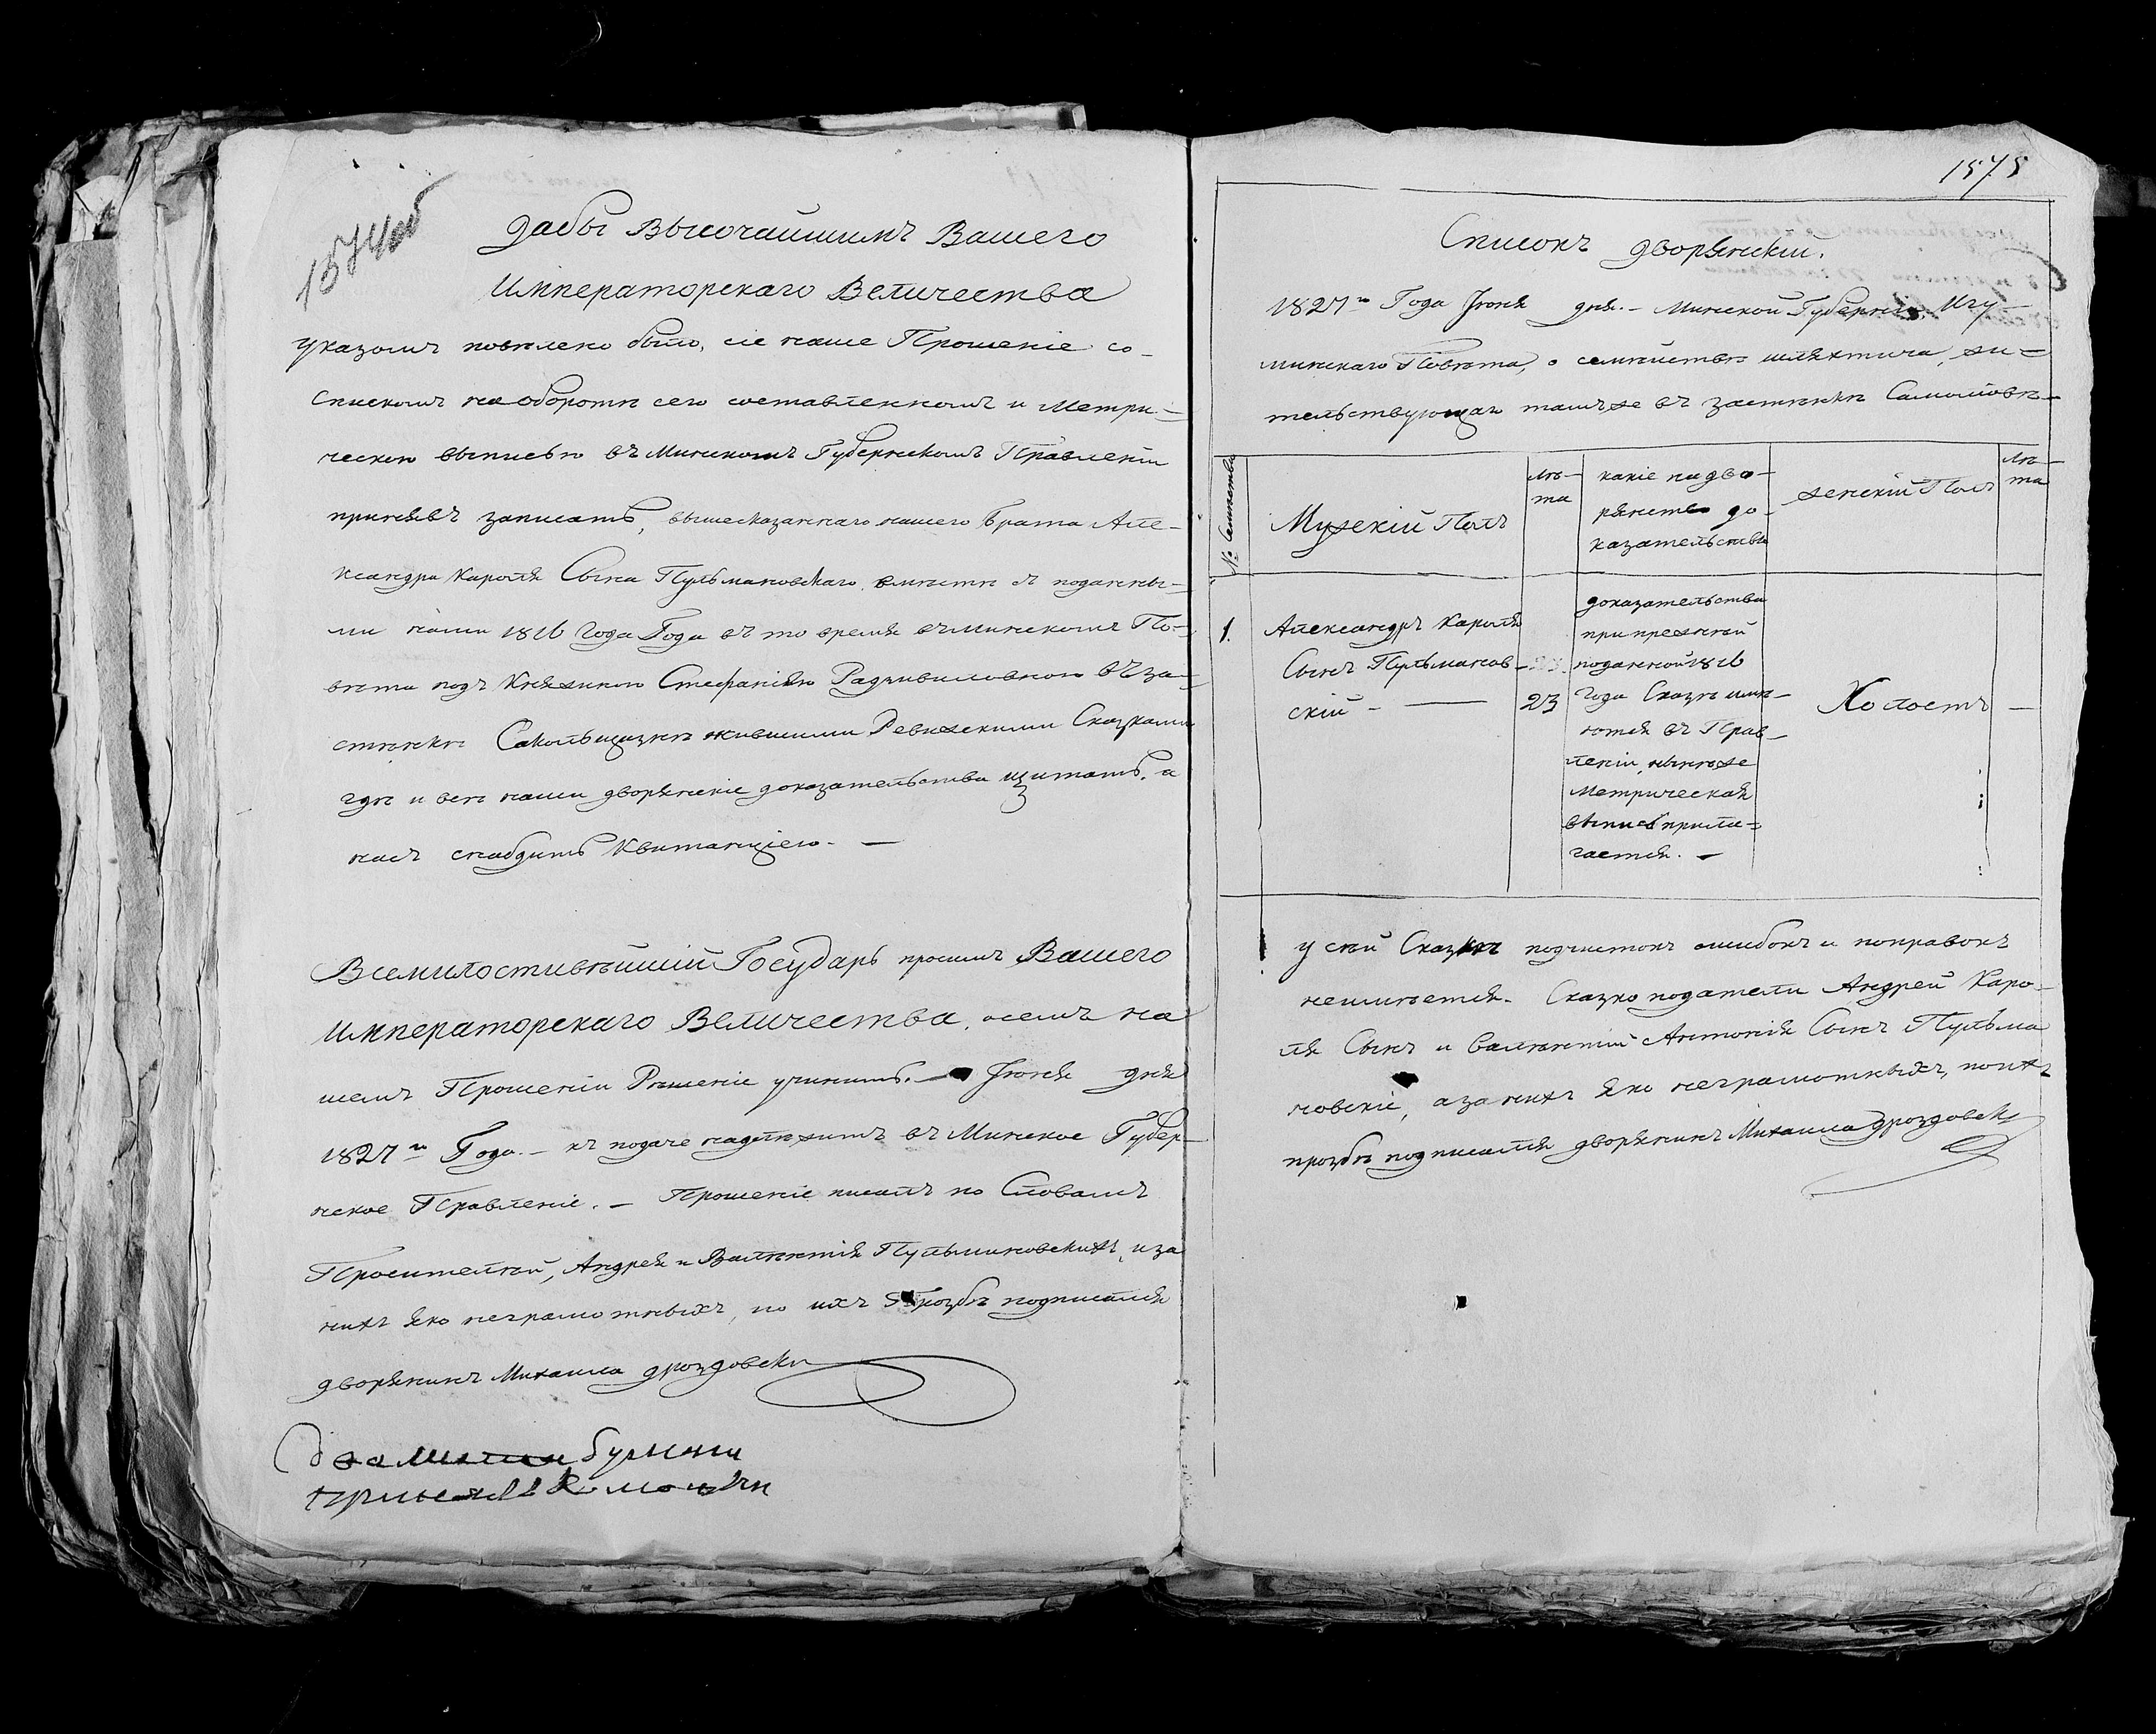 1574об
дабы Высочайшимъ Вашего
Императорскаго Величества
указомъ повѣлено было, сіе наше Прошеніе со-
спискомъ на оборотѣ сего составленномъ и Метри-
ческою выписью въ Минскомъ Губернскомъ Правленіи
принявъ записать, вышесказаннаго нашего Брата Але-
ксандра Кароля Сына Пульмановскаго вмѣстѣ съ поданны-
ми нами 1816 года Года въ то время въ Минскомъ По-
вѣта подъ Княжною Стефаніею Радзивиловною въ за-
стѣнкѣ жившими Ревизскими Сказками
гдѣ и всѣ наши дворянскіе доказательства а
насъ снабдить Квитанціею. —
Всемилостивѣйшій Государь просимъ Вашего
Императорскаго Величества, осемъ на
шемъ Прошеніи Рѣшеніе учинить. — Іюня дня
1827го Года. — къ подаче надлѣжитъ въ Минское Губер-
нское Правленіе. — Прошеніе писалъ по Словамъ
Просителѣй, Андрея и Валѣнтія Пульмановскихъ, и за
нихъ яко неграмотныхъ, по ихъ Прозбѣ подписался
дворянинъ Михаила дроздовски
1575
Списокъ дворянскій.
1827го Года Іюня дня. — Минской Губерніи, Игу
минскаго Повѣта, о семѣйствѣ шляхтича, жи-
тельствующаго тамъже въ застѣнкѣ
№ Семѣйствъ
Мужскій Полъ
лѣ-
та
какіе на дво-
рянство до-
казательства
женскій Полъ
лѣ-
та
1.
Александръ Кароля
Сынъ Пульманов-
скій — 23
доказательства
при прежнѣй
поданной 1816
года Сказкѣ имѣ-
ются въ Прав-
леніи, нынѣже
Метрическая
выпись прила-
гается. —
Холостъ —
у сѣй Сказкѣ подчистокъ ошибокъ и поправокъ
неимѣется. Сказко податели Андрей Каро-
ля Сынъ и Валѣнтій Антонія Сынъ Пульма
новскіе, а за нихъ яко неграмотныхъ, по ихъ
прозбѣ подписался дворянинъ Михаила дроздовски